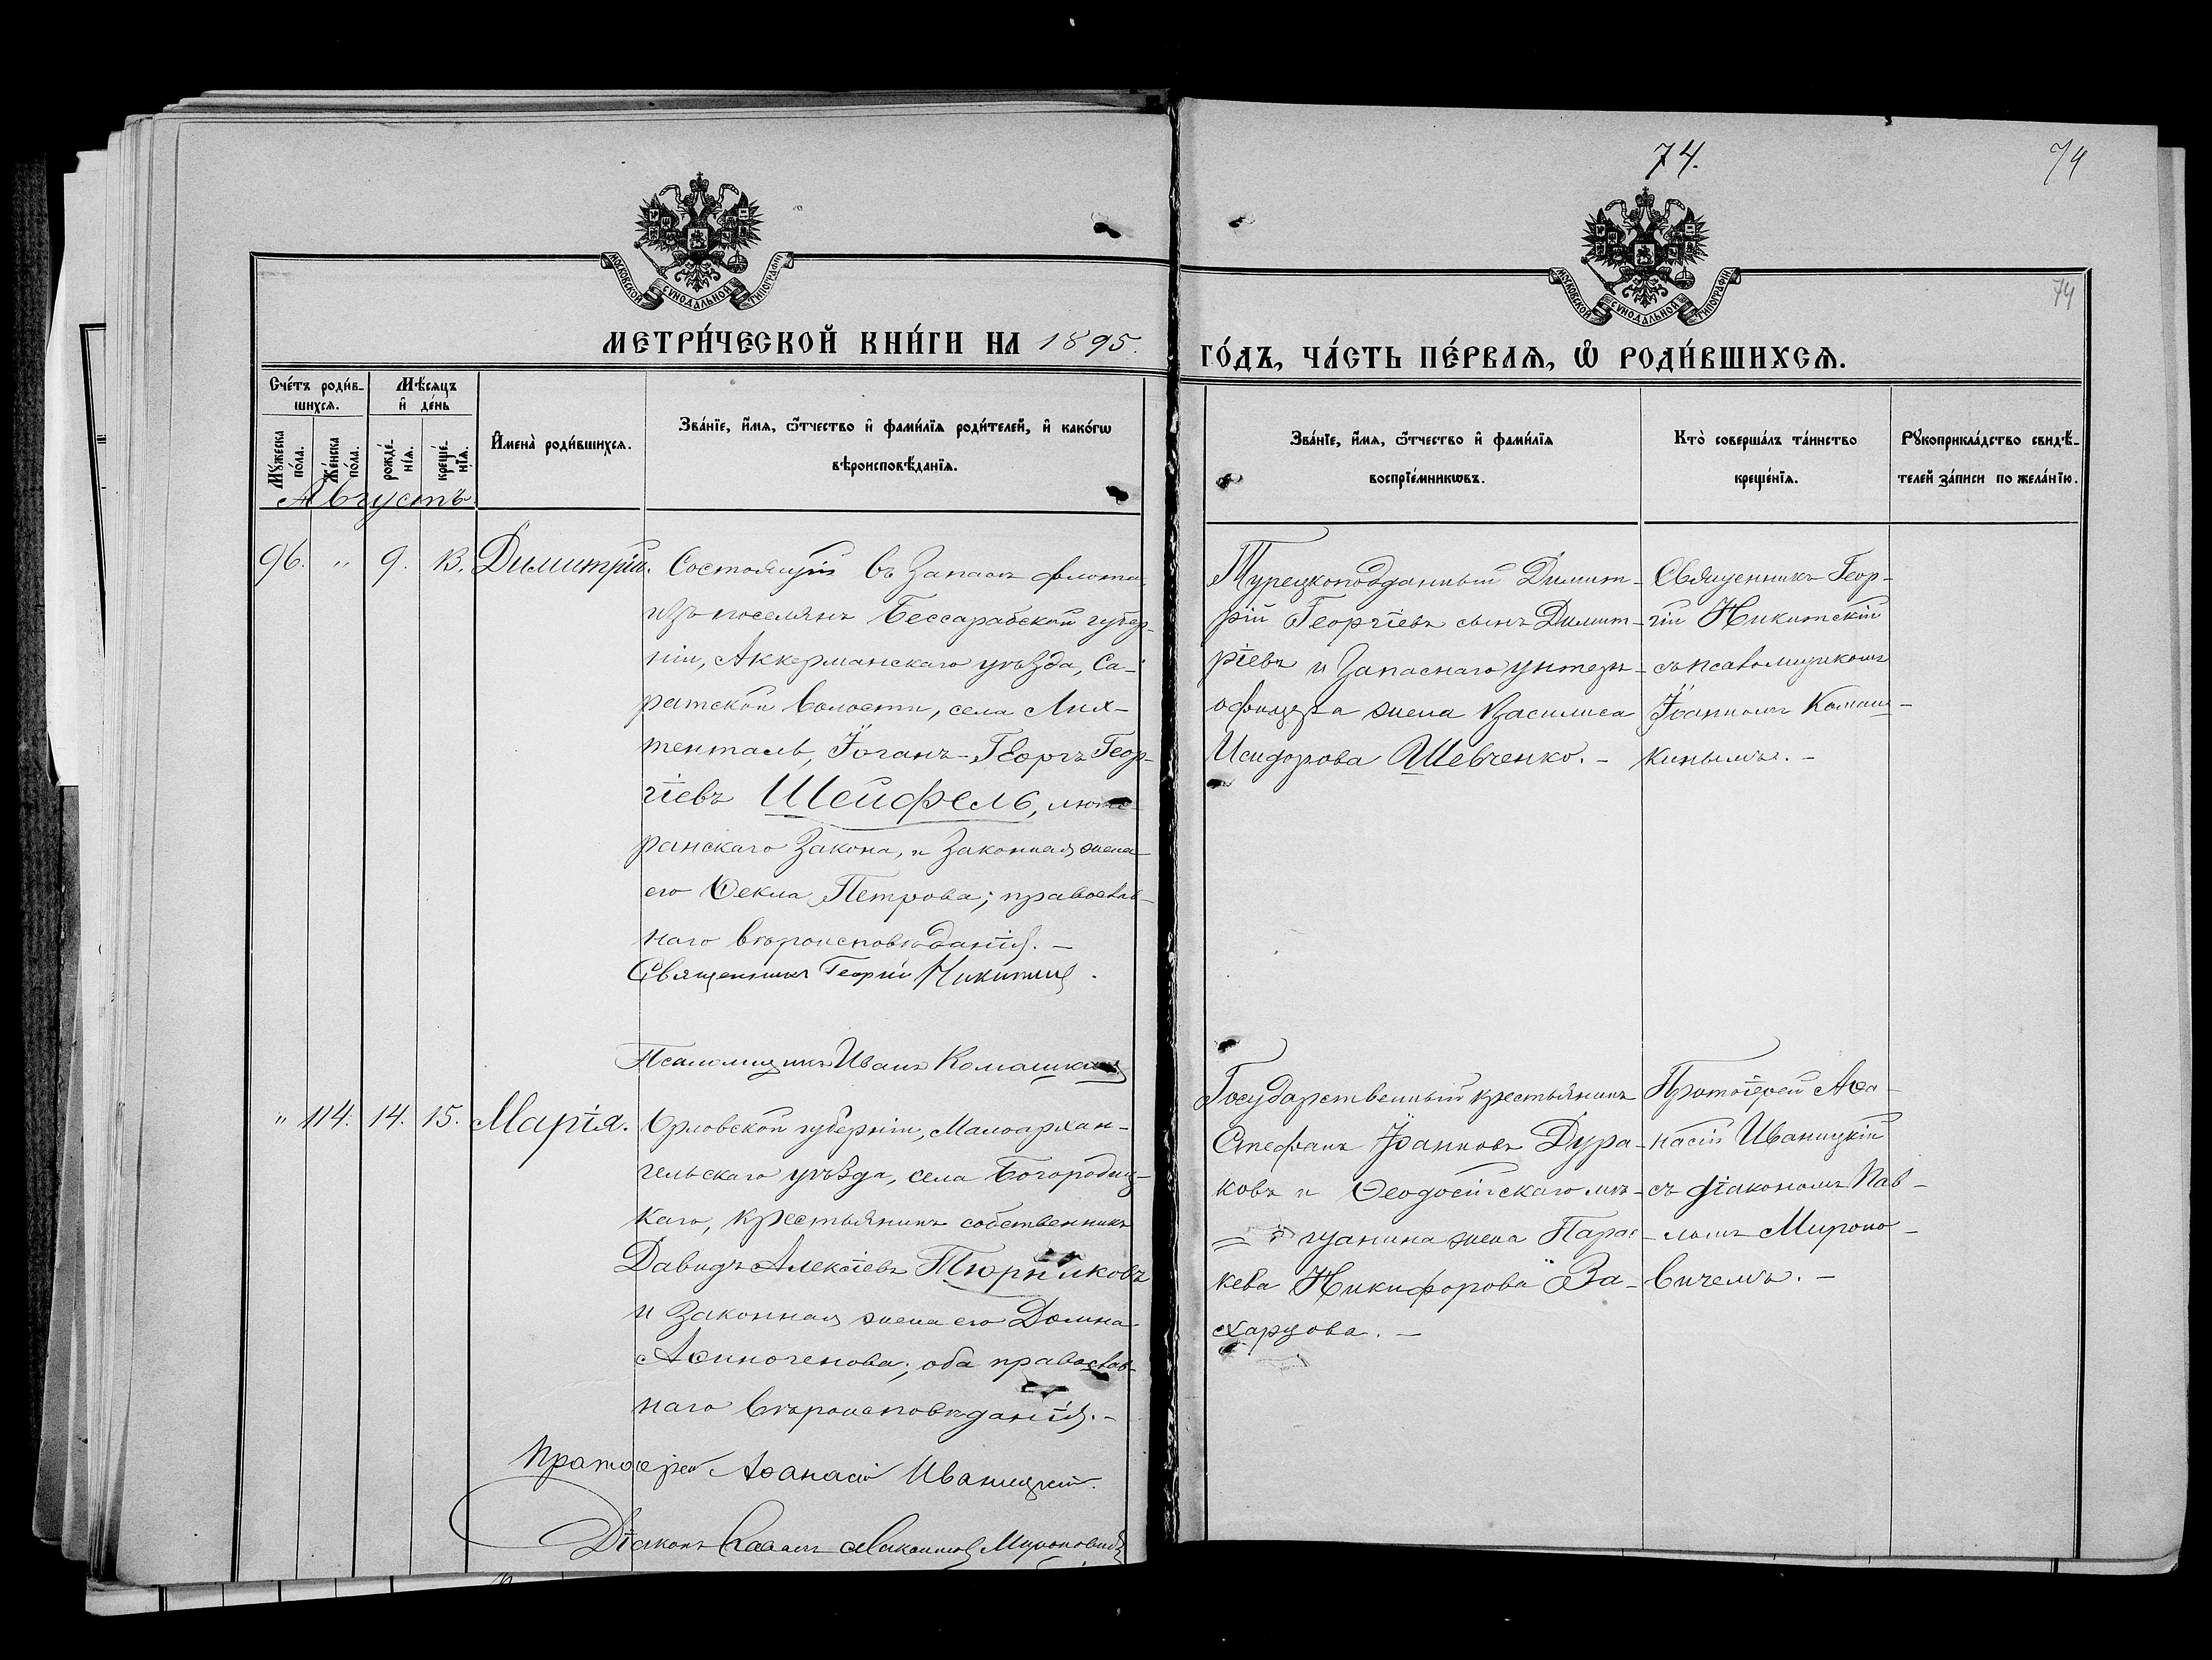 74.
74
74
МОСКОВСКОЙ СѴНОДАЛЬНОЙ ТИПОГРАФІИ
МОСКОВСКОЙ СѴНОДАЛЬНОЙ ТИПОГРАФІИ
МЕТРИ́ЧЕСКОЙ КНИ́ГИ НА 1895.
ГО́ДЪ, ЧА́СТЬ ПЕ́РВАѦ, Ѽ РОДИ́ВШИХСѦ.
Сче́тъ роди́в-
шихсѧ.
Мꙋ́жеска по́ла.
Же́нска по́ла.
Мѣ́сѧцъ
и҆ де́нь
рожде́нїѧ.
креще́нїѧ.
И҆мена̀ роди́вшихсѧ.
Зва́нїе, и҆́мѧ, ѻ҆́тчество и҆ фами́лїѧ роди́телей, и҆ како́гѡ
вѣроисповѣ́данїѧ.
Зва́нїе, и҆́мѧ, ѻ҆́тчество и҆ фами́лїѧ
воспрїе́мникѡвъ.
Кто̀ соверша́лъ та́инство
креще́нїѧ.
Рꙋкоприкла́дство свидѣ́-
телей за́писи по жела́нїю.
Августъ.
96. " 9. 13. Димитрій.
Состоящій въ Запасѣ флота
изъ поселянъ Бессарабской губер-
ніи, Аккерманскаго уѣзда, Са-
ратской волости, села Лих-
тенталь, Іоганъ-Георгъ Геор-
гіевъ Шейфель, люте-
ранскаго Закона, и Законная жена
его Ѳекла Петрова; православ-
наго вѣроисповѣданія. —
Священникъ Георгій Никитскій.
Псаломщикъ Иванъ Комашкинъ
Турецкоподданный Димит-
рій Георгіевъ сынъ Димит-
ріевъ и Запаснаго унтеръ-
офицера жена Василиса
Исидорова Шевченко. —
Священникъ Геор-
гій Никитскій
съ псаломщикомъ
Іоанномъ Комаш-
кинымъ. —
" 114. 14. 15. Марія.
Орловской губерніи, Малоархан-
гельскаго уѣзда, села Богородиц-
каго, крестьянинъ собственникъ
Давидъ Алексіевъ Тюриковъ
и Законная жена его Домна
Аѳиногенова; оба православ-
наго вѣроисповѣданія. —
Протоіерей Аѳанасій Иваницкій.
Діаконъ Павелъ Мироновичъ
Государственный крестьянинъ
Стефанъ Іоанновъ Дура-
ковъ и Ѳеодосійскаго мѣ-
щанина жена Парас-
кева Никифорова За-
харцова. —
Протоіерей Аѳа-
насій Иваницкій
съ діакономъ Пав-
ломъ Мироно-
вичемъ. —